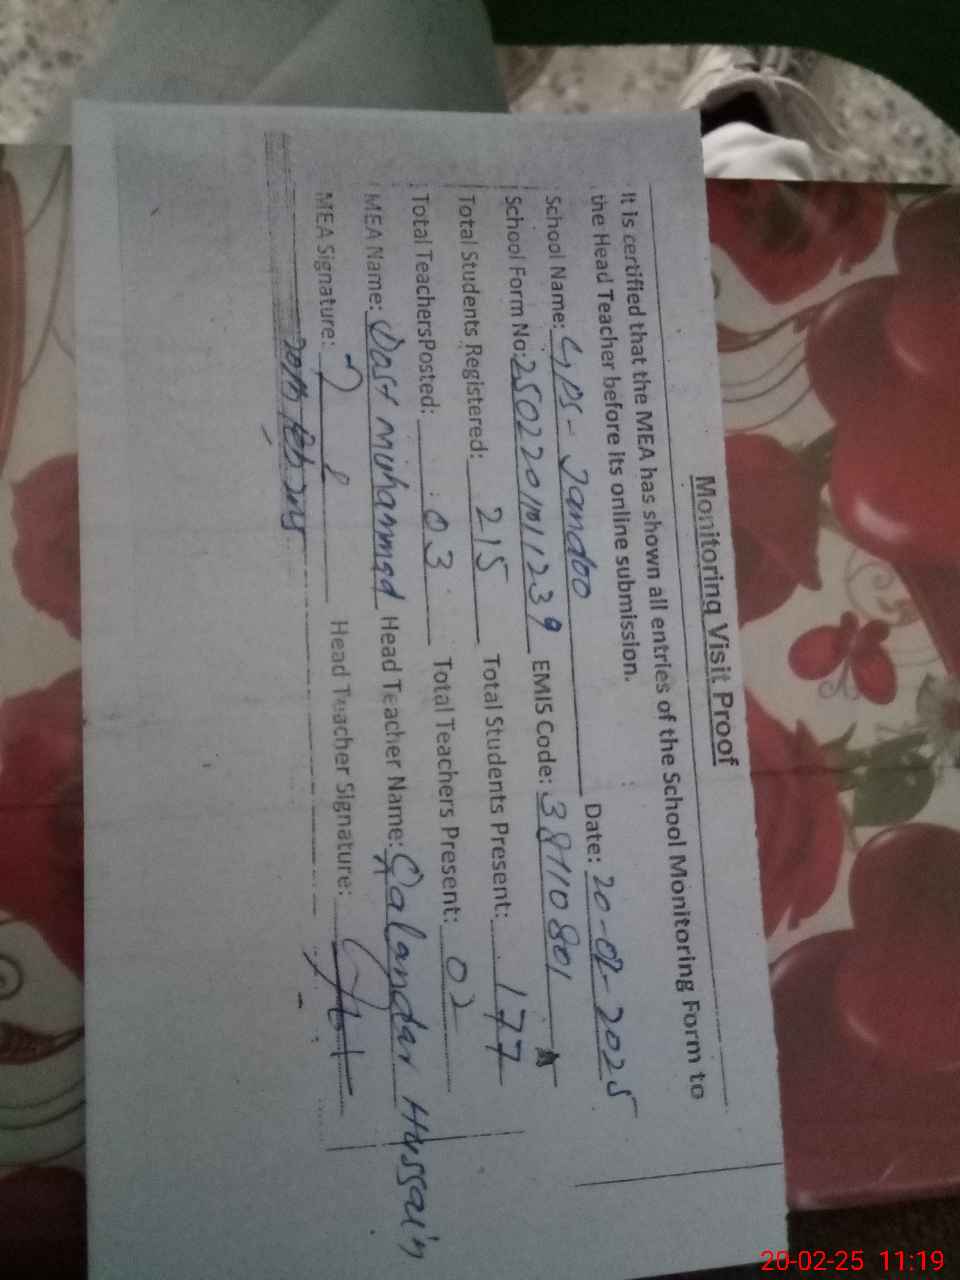 Monitoring Visit Proof
It is certified that the MEA has shown all entries of the School Monitoring Form to
the Head Teacher before its online submission.
School Name: GPS - Jandoo Date: 20-02-2025
School Form No: EMIS Code: 38110801
Total Students Registered: 215 Total Students Present: 177
Total TeachersPosted: 03 Total Teachers Present: 02
MEA Name: Dost Muhammad Head Teacher Name: Qalandar Hussain
MEA Signature: Head Teacher Signature:
20-02-25 11:19